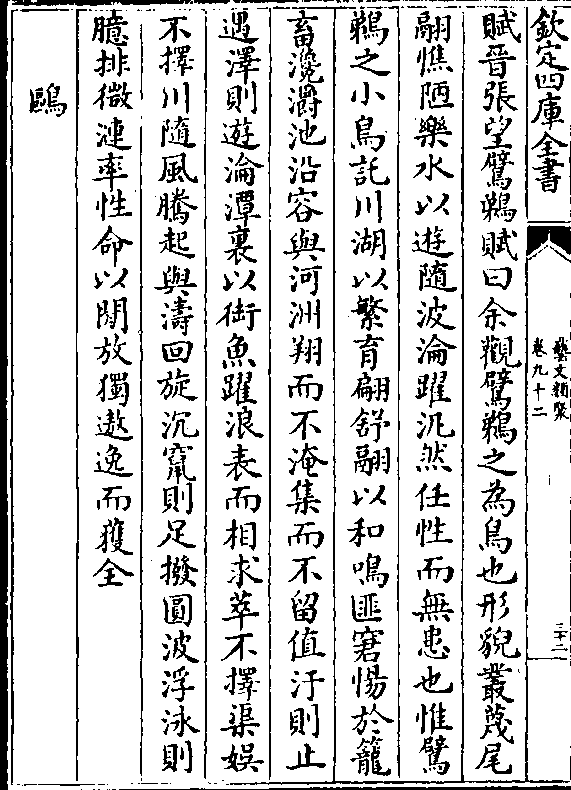 欽定四庫全書
藝文類聚
卷九十二
三十二
賦晉張望鷿鷉賦曰余觀鷿鷉之為鳥也形貌叢蔑尾
翮憔陋樂水以遊隨波淪躍汎然任性而無患也惟鷿
鷉之小鳥託川湖以繁育翩舒翮以和鳴匪窘惕於籠
畜瀺灂池沿容與河洲翔而不淹集而不留值汙則止
遇澤則遊淪潭裏以銜魚躍浪表而相求萃不擇渠娛
不擇川隨風騰起與濤回旋沉竄則足撥圓波浮泳則
臆排微漣率性命以閒放獨遨逸而獲全
鷗